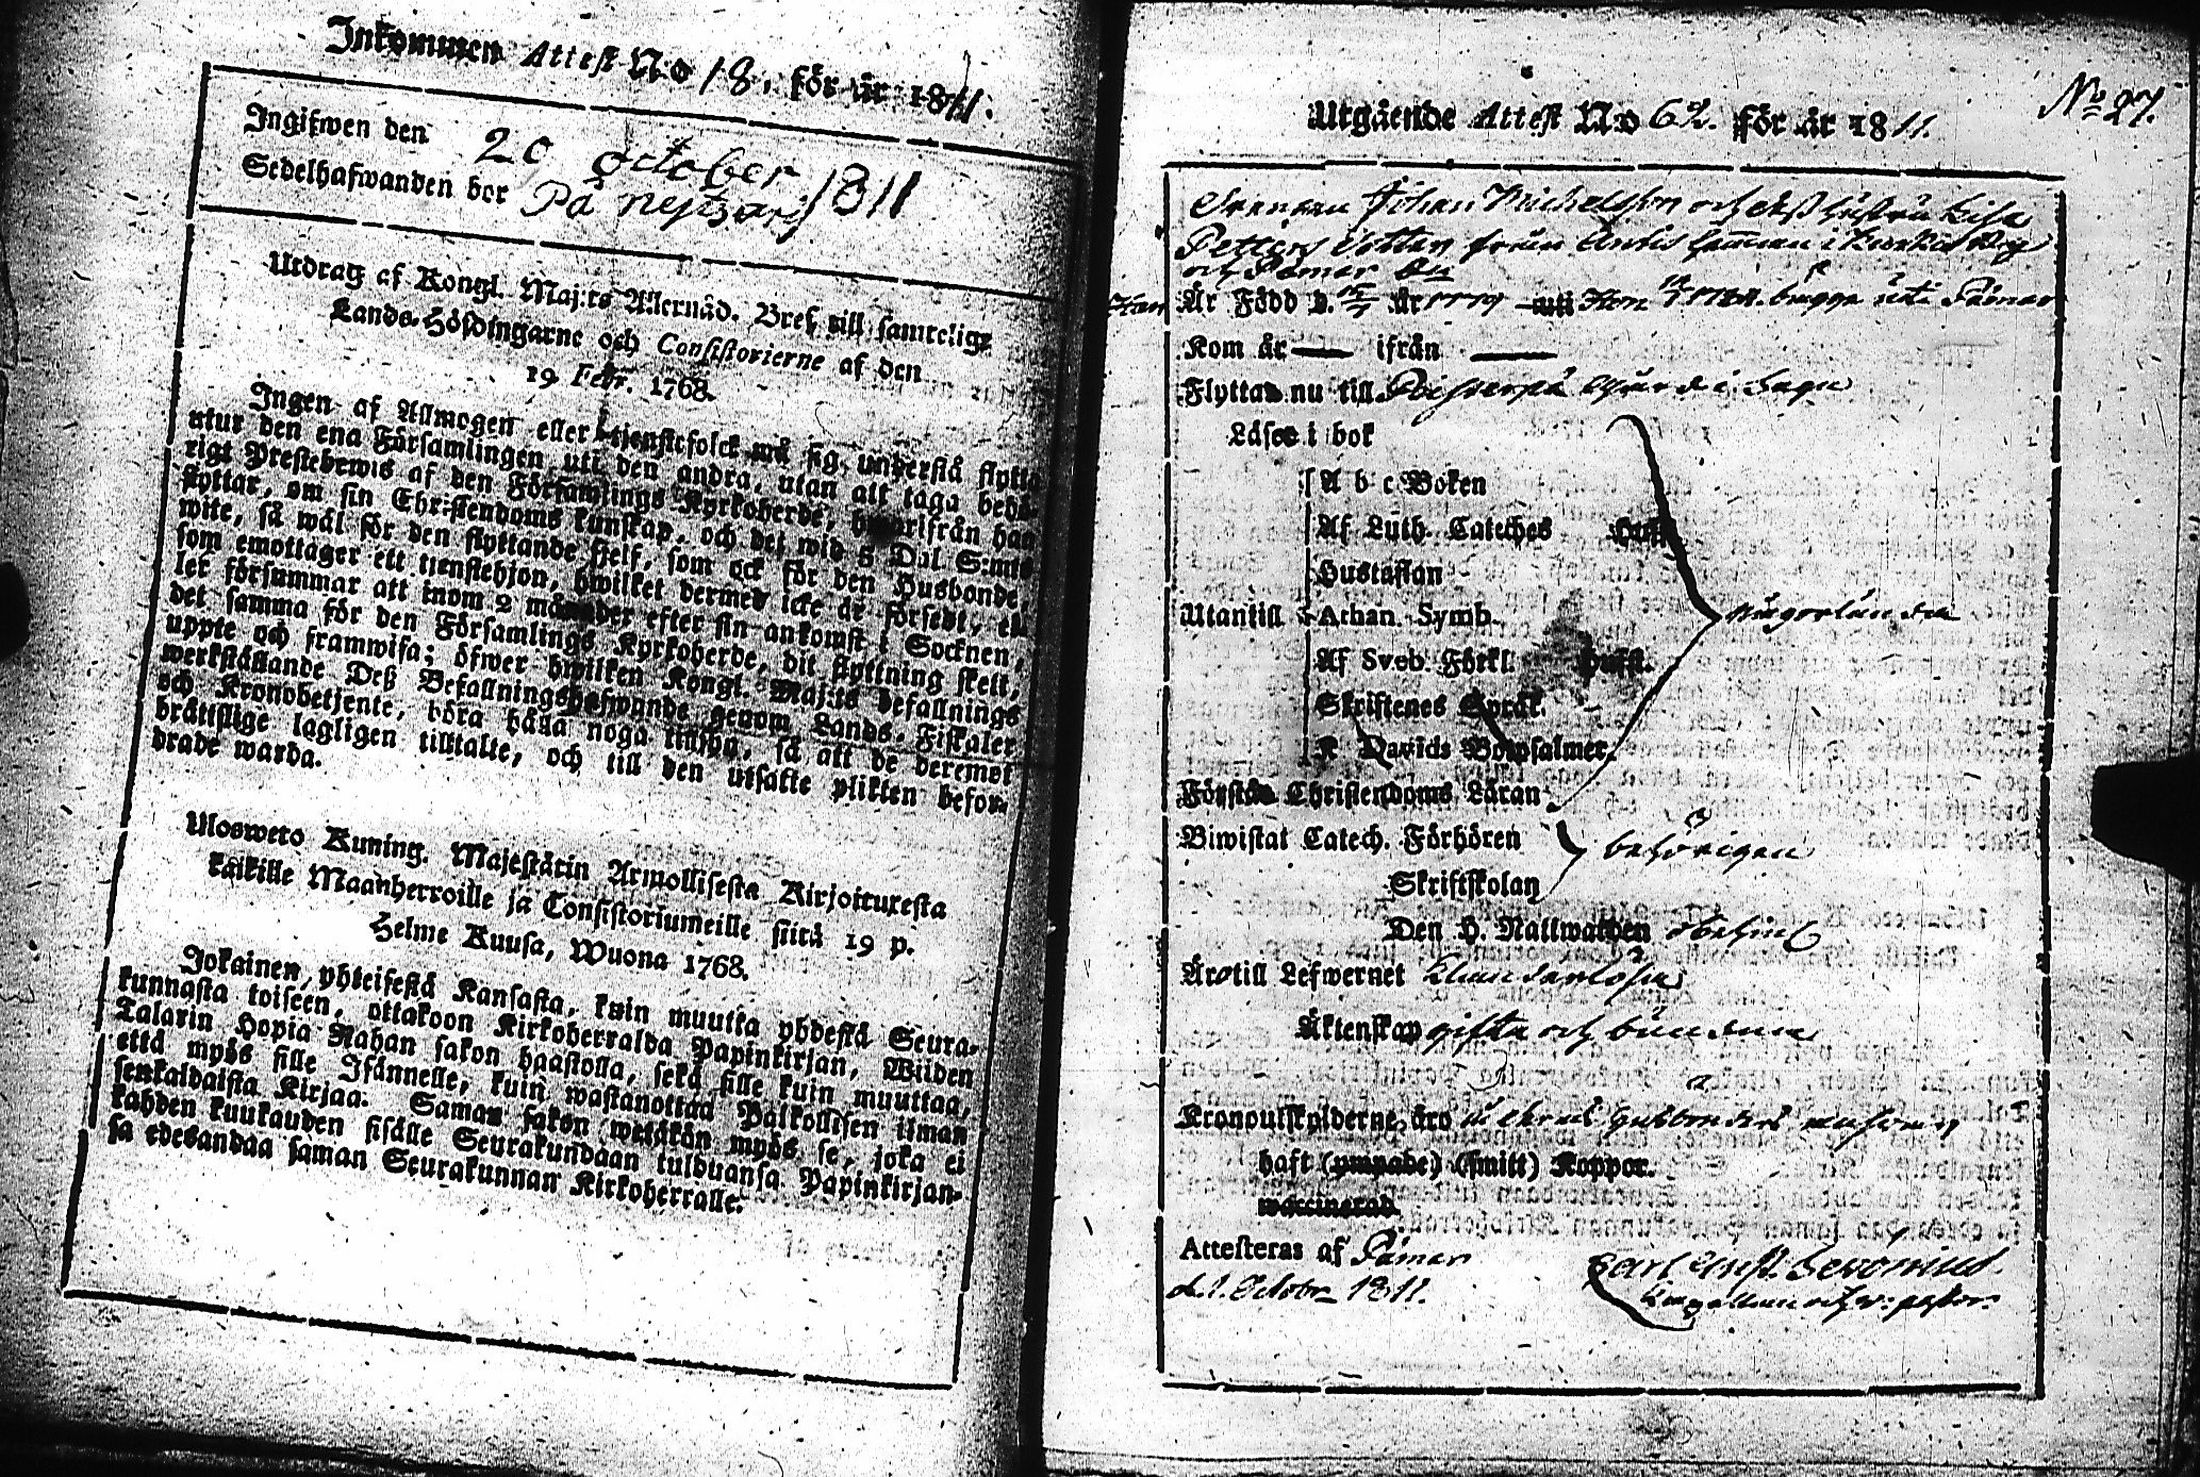 Inkommen Attest No 18. för år 1811.
Ingifwen den 20 October 1811
Sedelhafwanden bor På
Utdrag af Kongl. Maj:ts Allernåd. Bref till samtelige
Lands-Höfdingarne och Consistorierne af den
19 Febr. 1768.
Ingen af Allmogen eller tjenstefolck må sig understå flytta
utur den ena Församlingen uti den andra, utan att taga behö-
rigt Prestebewis af den Församlings Kyrkoherde, hwarifrån han
flyttar, om sin Christendoms kunskap, och det wid 5 Dal. S:mts
wite, så wäl för den flyttande sjelf, som ock för den Husbonde,
som emottager ett tienstehjon, hwilket dermed icke är försedt, el-
ler försummar att inom 2 månader efter sin ankomst i Socknen,
det samma för den Församlings Kyrkoherde, dit flyttning skett,
uppte och framwisa; öfwer hwilken Kongl. Maj:ts befallnings
werkställande Deß Befallningshafwande genom Lands-Fiskaler
och Kronobetjente, böra hålla noga tillsyn, så att de deremot
bråttslige lagligen tilltalte, och till den utsatte plikten befor-
drade warda.
Uloswetö Kuning. Majestätin Armollisesta Kirjoituxesta
kaikille Maanherroille ja Consistoriumeille siitä 19 p.
Helme Kuusa, Wuona 1768.
Jokainen yhteisestä Kansasta, kuin muutta yhdestä Seura-
kunnasta toiseen, ottakoon Kirkoherralda Papinkirjan, Wiiden
Talarin Hopia Rahan sakon haastolla, sekä sille kuin muuttaa,
että myös sille Isännelle, kuin wastanottaa Palkollisen ilman
senkaldaista Kirjaa. Saman sakon wetäkön myös se, joka ei
kahden kuukauden sisälle Seurakundaan tulduansa Papinkirjan-
sa edesandaa saman Seurakunnan Kirkoherralle.
No 27.
Utgående Attest No 62. för år 1811.
Johan Michelsson och deß hustru Lisa
Petters dotter från
och Pämar
Är Född d. År 1779 uti bägge uti Pämar
Kom år — ifrån —
Flyttar nu till i Sagu
Läser i bok
A b c Boken
Af Luth. Cateches
Hustaflan
Utantill Athan. Symb. någorlunda
Af Sveb. Förkl.
Skriftenes Språk
K Davids Botpsalmer
Förstår Christendoms Läran
Biwistat Catech. Förhören behörigen
Skriftskolan
Den H. Nattwarden
Äro till Lefwernet klanderlösa
Äktenskap gifta och bundna
Kronoutskylderne äro
haft (ympade) (smitt) Koppor.
waccinerad.
Attesteras af Pämar
d. 1. Octobr 1811.
Carl